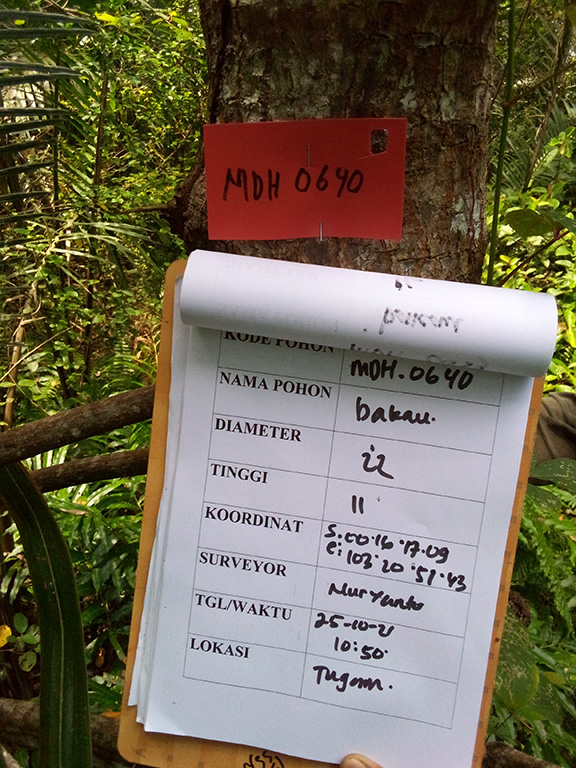 MDH 0640
KODE POHON MDH.0640
NAMA POHON bakau.
DIAMETER 22
TINGGI 11
KOORDINAT S:00.16.17.09
E:103.20.51.43
SURVEYOR Nuryanto
TGL/WAKTU 25-10-21
10:50.
LOKASI